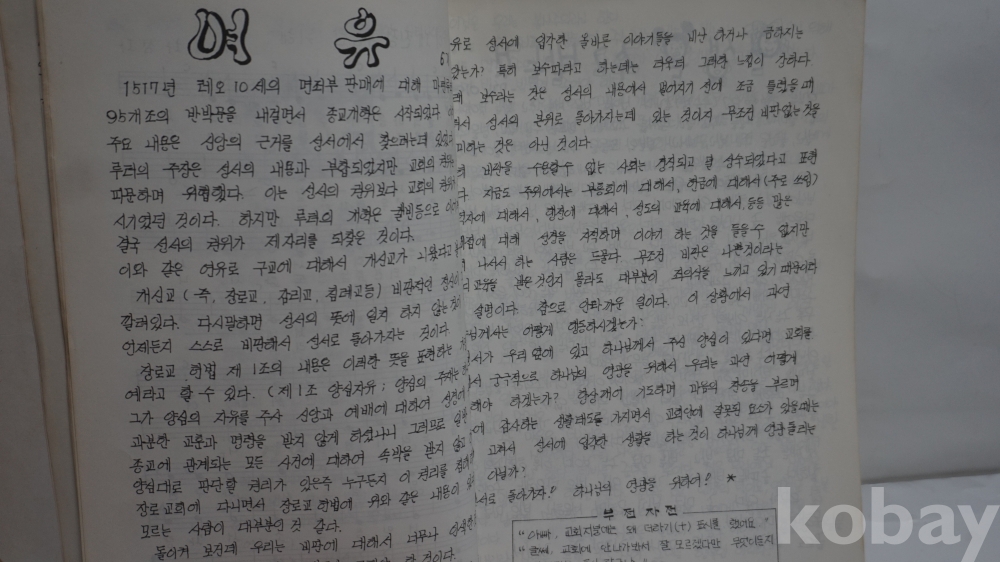 여 유
1517년 레오 10세의 면죄부 판매에 대해
95개조의 반박문을 내걸면서 종교개혁은 시작되었다
주요 내용은 신앙의 근거를 성서에서 찾으려는데 있었다
루터의 주장은 성서의 내용과 부합되었지만 교회의 권위
파문하며 위협했다. 이는 성서의 권위보다 교회의 권위
시켰던 것이다. 하지만 루터의 개혁은
결국 성서의 권위가 제자리를 되찾은 것이다.
이와 같은 연유로 구교에 대해서 개신교가 나왔다고
개신교 (즉, 장로교, 감리교, 침례교등) 비판적인 정신이
깔려있다. 다시말하면 성서의 뜻에 일치 하지 않는 것이
언제든지 스스로 비판해서 성서로 돌아가자는 것이다.
장로교 헌법 제 1조의 내용은 이러한 뜻을 표현하는
예라고 할 수 있다. (제1조 양심자유; 양심의 주재는
그가 양심의 자유를 주사 신앙과 예배에 대하여 성경에
과분한 교훈과 명령을 받지 않게 하셨나니 그러므로 일반
종교에 관계되는 모든 사건에 대하여 속박을 받지 않고
양심대로 판단할 권리가 있은즉 누구든지 이 권리를 침해
장로교회에 다니면서 장로교 헌법에 위와 같은 내용이
모르는 사람이 대부분인 것 같다.
돌이켜 보건데 우리는 비판에 대해서 너무나 인색한
유로 성서에 입각한 올바른 이야기들을 비난 하거나
않는가? 특히 보수파라고 하는데는 더우더 그러한 느낌이 강하다.
래 보수라는 것은 성서의 내용에서 떨어지기 전에 조금 틀렸을 때
서 성서의 본위로 돌아가자는데 있는 것이지 무조건 비판없는 것을
미하는 것은 아닌 것이다
비판을 수용할 수 없는 사회는 정착되고 말 것이라고 표현
다. 지금도 주위에서는 부흥회에 대해서, 헌금에 대해서 (주로 쓰임)
직자에 대해서, 행정에 대해서, 성도의 교육에 대해서, 등등 많은
점에 대해 성경을 지적하며 이야기 하는 것을 들을수 있지만
나서서 하는 사람은 드물다. 무조건 비판은 나쁜것이라는
교육을 받은것인지 몰라도 대부분이 죄의식을 느끼고 있기 때문이라
설명이다. 참으로 안타까운 일이다. 이 상황에서 과연
님께서는 어떻게 행동하시겠는가?
서가 우리 옆에 있고 하나님께서 주신 양심이 있다면 교회를
서 궁극적으로 하나님의 영광을 위해서 우리는 과연 어떻게
해야 하겠는가? 항상깨어 기도하며 마음의 찬송을 부르며
에 감사하는 생활태도를 가지면서 교회안에 잘못된 요소가 있을때는
고쳐서 성서에 입각한 생활을 하는 것이 하나님께 영광 돌리는
아닐까?
서로 돌아가자!! 하나님의 영광을 위하여!! *
부전자전
"아빠, 교회지붕에는 왜 더하기(+) 표시를 했어요?"
"글쎄, 교회에 안나가봐서 잘 모르겠다만 무엇이든지
kobay